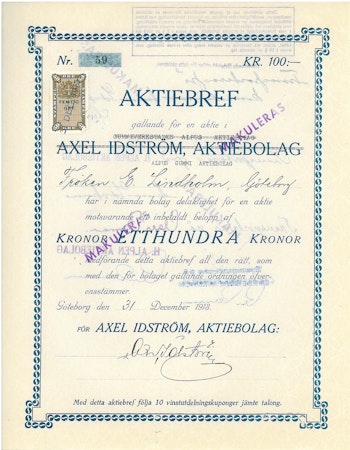 Nr. 59 KR. 100:—
MAKULERAS
AKTIEBREF
gällande för en aktie i
AXEL IDSTRÖM, AKTIEBOLAG
ALFEN GUMMI AKTIEBOLAG
MAKULERAS
Fröken E. Lindholm, Göteborg
har i nämnda bolag delaktighet för en aktie
motsvarande ett inbetaldt belopp af
KRONOR ETTHUNDRA KRONOR
MAKULERAS
medförande detta aktiebref all den rätt, som
med den för bolaget gällande ordningen öfver-
ensstämmer.
Göteborg den 31 December 1918.
FÖR AXEL IDSTRÖM, AKTIEBOLAG:
Axel Idström
Med detta aktiebref följa 10 vinstutdelningskuponger jämte talong.